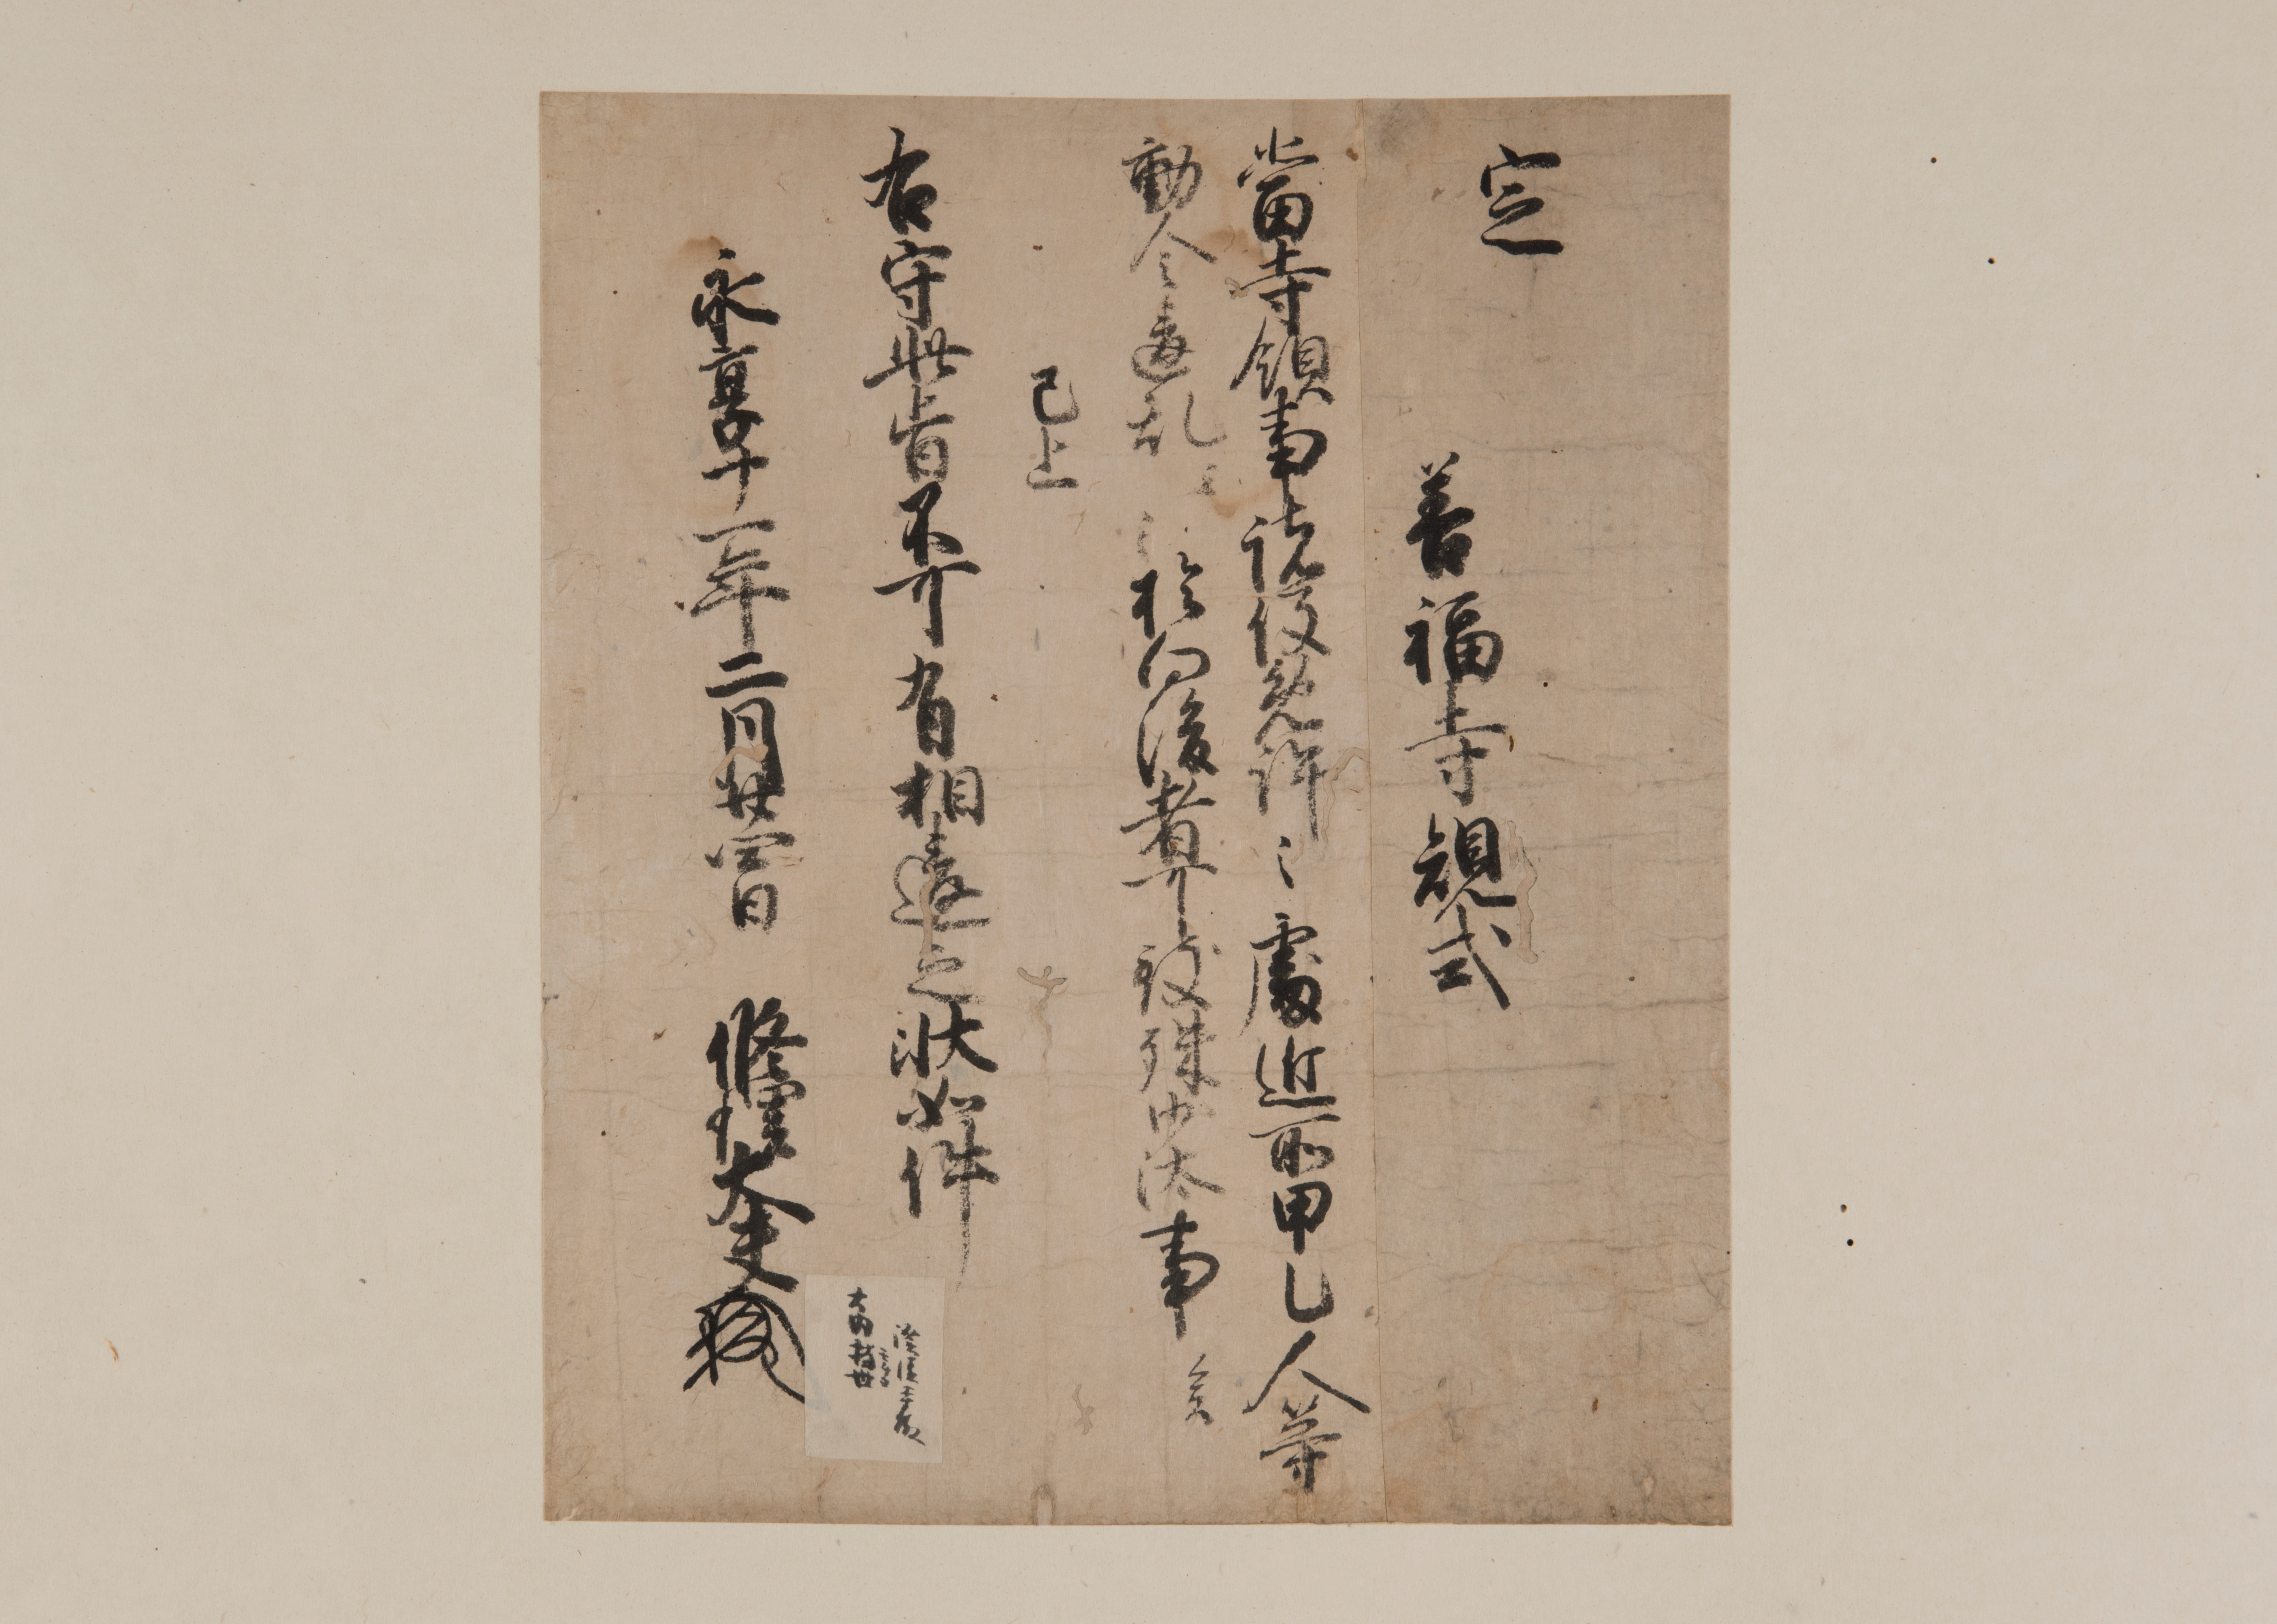 定
善福寺規式
當寺領事諸役免許之處近所甲乙人等
動令違乱云々於向後者可致殊沙汰事矣
已上
右守此旨不可有相違之状如件
永享十一年二月廿四日 修理大夫
大内持世